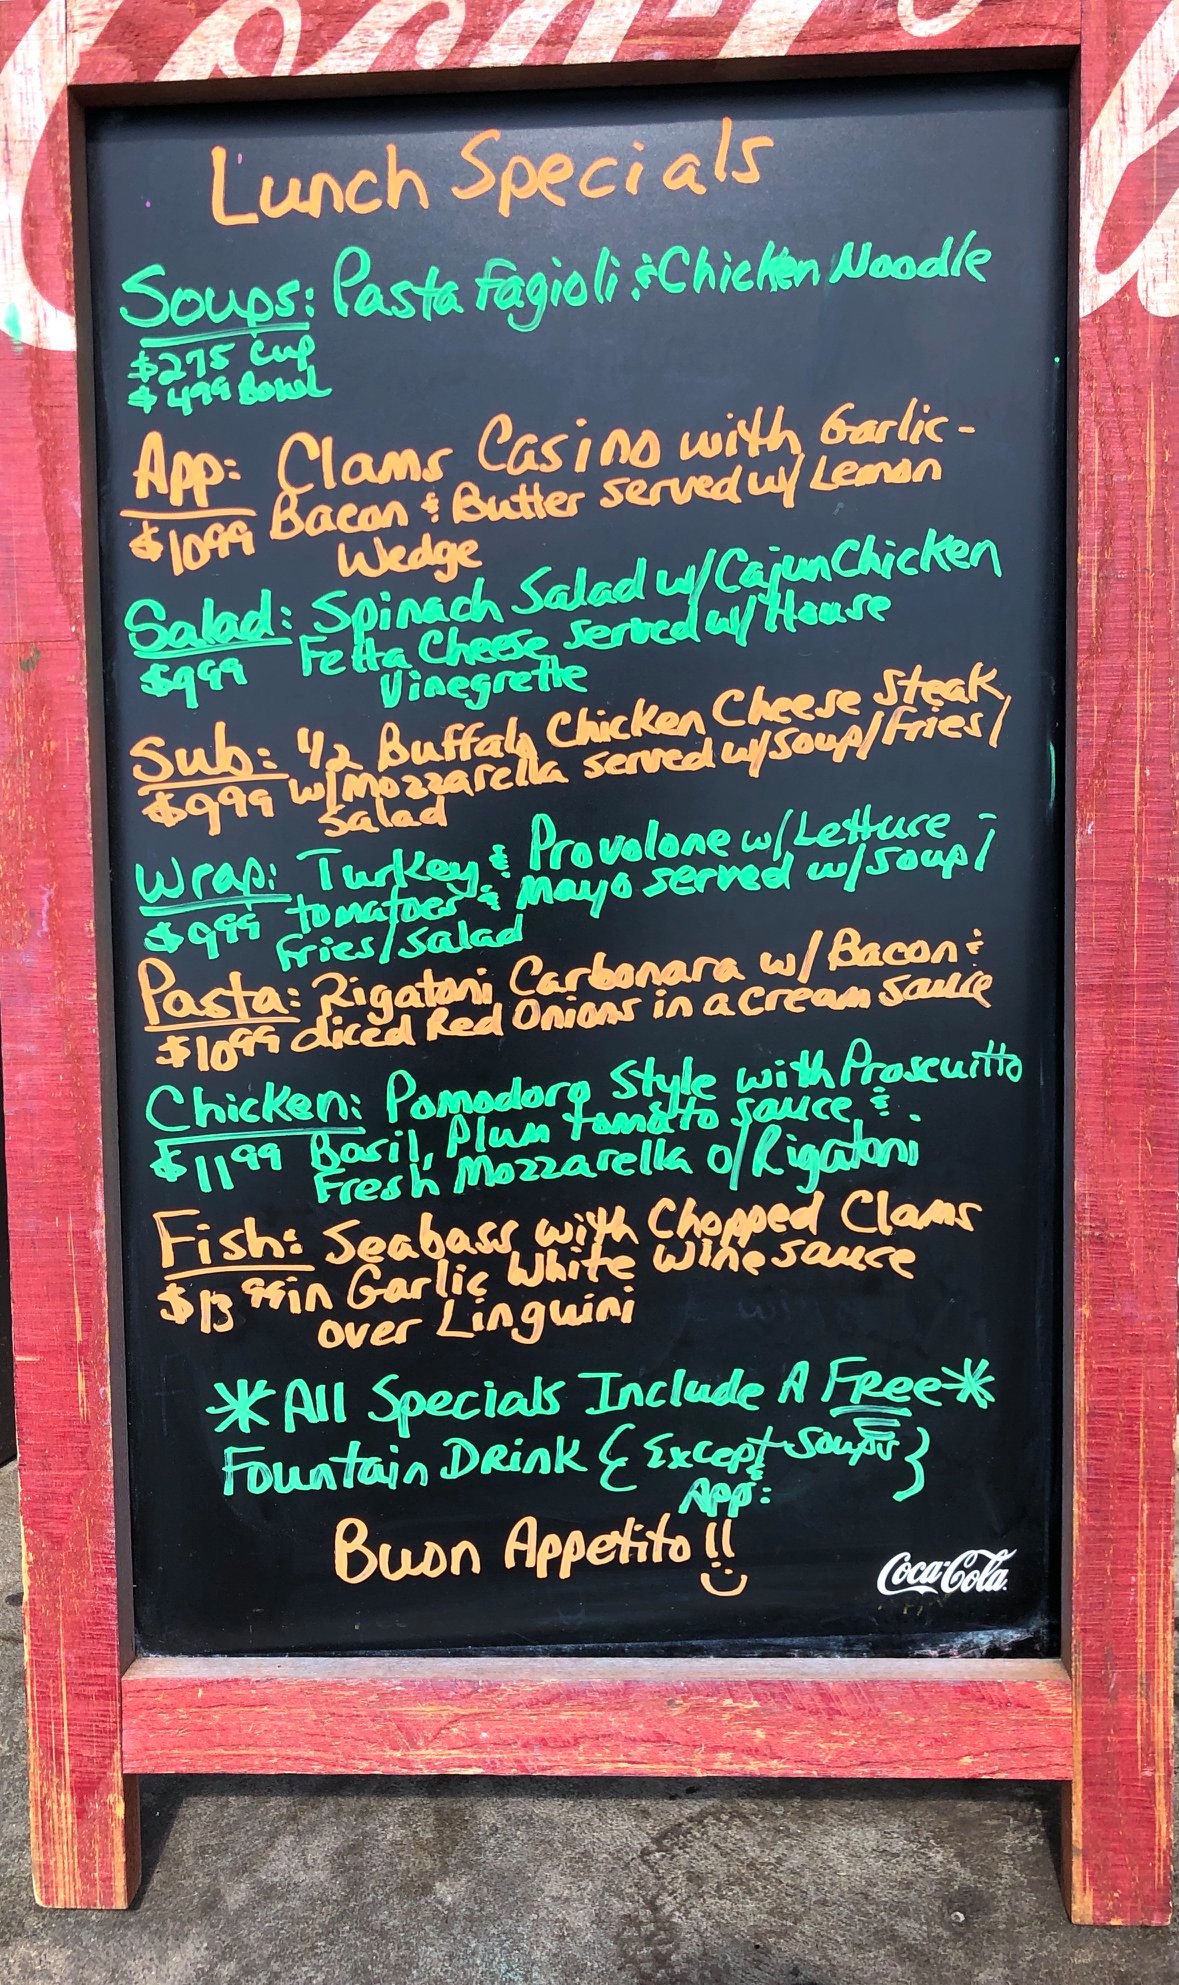 Lunch Specials
Soups: Pasta Fagioli & Chicken Noodle
$2.75 Cup
$4.99 Bowl
App: Clams Casino with Garlic-
$10.99 Bacon & Butter served w/ Lemon
Wedge
Salad: Spinach Salad w/ Cajun Chicken
$9.99 Fetta Cheese served w/ House
Vinegrette
Sub: 1/2 Buffalo Chicken Cheese Steak
$9.99 w/ Mozzarella served w/ Soup/Fries/
Salad
Wrap: Turkey & Provolone w/ Lettuce -
$9.99 tomatoes & Mayo served w/ soup/
Fries/Salad
Pasta: Rigatoni Carbonara w/ Bacon &
$10.99 diced Red Onions in a cream sauce
Chicken: Pomodoro Style with Proscuitto
$11.99 Basil, Plum tomato sauce &
Fresh Mozzarella o/ Rigatoni
Fish: Seabass with Chopped Clams
$13.99 in Garlic White Wine sauce
over Linguini
*All Specials Include A Free*
Fountain Drink {Except Soups}
& App:
Buon Appetito!!
Coca-Cola